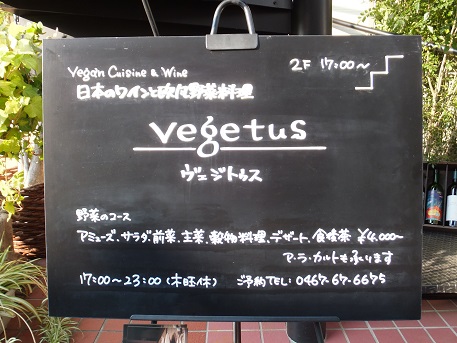 Vegan Cuisine & Wine
2F 17:00〜
日本のワインと欧風野菜料理
vegetus
ヴェジトゥス
野菜のコース
アミューズ、サラダ、前菜、主菜、穀物料理、デザート、食後茶 ¥4,000〜
ア・ラ・カルトもあります
17:00〜23:00(木曜休) ご予約TEL: 0467-67-6675